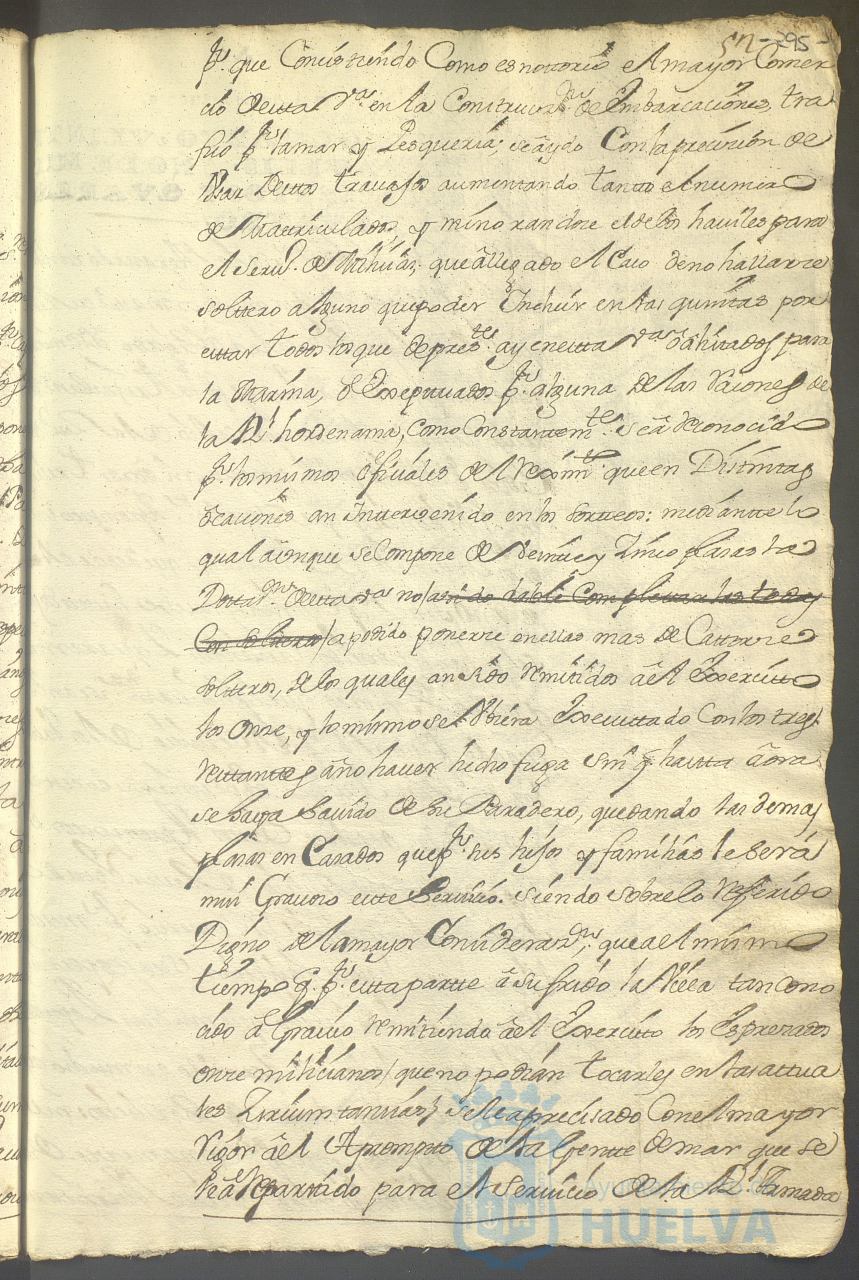 52 - 295 -
pr. que Concistiendo Como es nottorio el mayor Comer
cio de esta Va. en la Construcon. de Embarcaciones, tra
fico pr. la mar y Pesqueria; se a ydo Con la precision de
Usar de ttos travajos aumentando tanto el numero
de Matriculados, y minorandose el de los haviles para
el Serv. de Milicias; que a llegado el Caso de no hallarse
solttero alguno que poder Incluir en las quinttas por
esttar todos los que de prestte. ay en estta Va. o alistados para
la Marina, o Exseptuados pr. alguna de las raciones de
la Rl. hordenansa, Como Constantemte. se a reconocido
pr. los mismos oficiales del Reximto. que en Disttinttas
ocaciones an Intterbenido en los Sortteos: mediantte lo
qual aunque se Compone de Veintte y Zinco plasas la
Dottaon. de estta Va. no / a sido dable Complettarlas todas
Con soltteros / a podido ponerse en ellas mas de Cattorse
soltteros, de los quales an sido remitidos a el Exercitto
los Onse, y lo mismo se ubiera Executtado Con los tres
restanttes a no haver hecho fuga sin q. hasta aora
se haya Savido de su Paradero, quedando las demas
plasas en Casados que pr. sus hijos y familias le será
mui Gravoso estte Servicio. siendo sobre lo referido
Digno de la mayor Consideraon. que a el mismo
tiempo q. pr. estta partte a sufrido la Villa tan cono
cido a Gravio remitiendo a el Exercitto los Expresados
onse milicianos / que no podian tocarles en las attua
les Zircunstancias / se le a precisado Con el mayor
rigor a el Apromptto de la Gentte de mar que se
le a Reparttido para el Servicio de la Rl. Armada
Ayuntamiento de
HUELVA